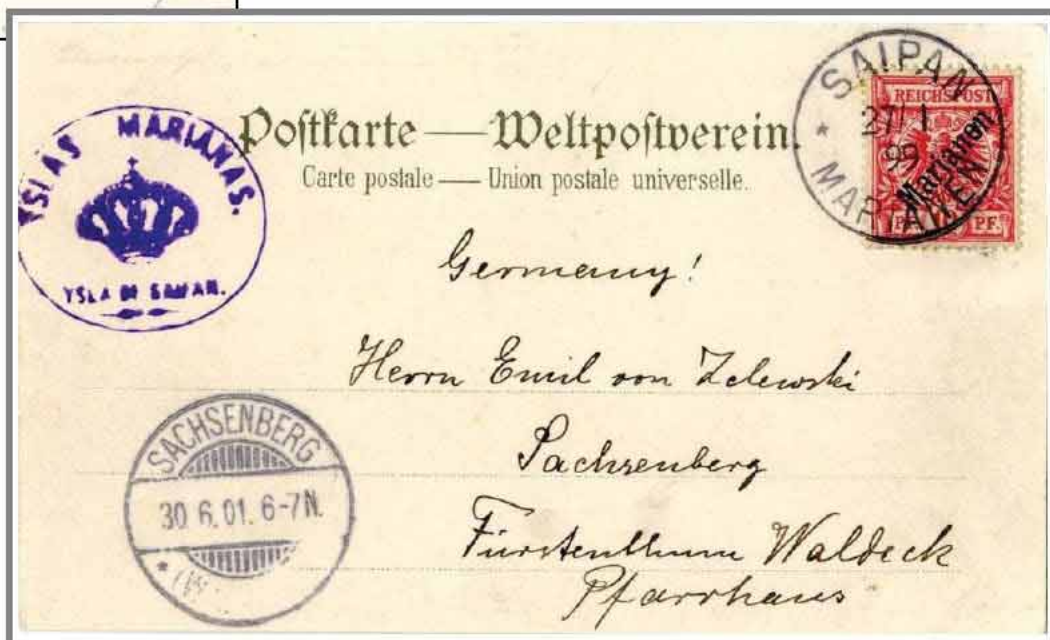 YSLAS MARIANAS.
YSLA DE SAIPAN.
Postkarte — Weltpostverein.
Carte postale — Union postale universelle.
SAIPAN
27/1
99
MARIANEN
REICHSPOST
Marianen
PF. 10 PF.
Germany!
Herrn Emil von Zelewski
Sachsenberg
Fürstenthum Waldeck
Pfarrhaus
SACHSENBERG
30 6.01. 6-7N.